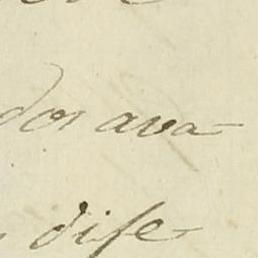 dos ava-
dife-